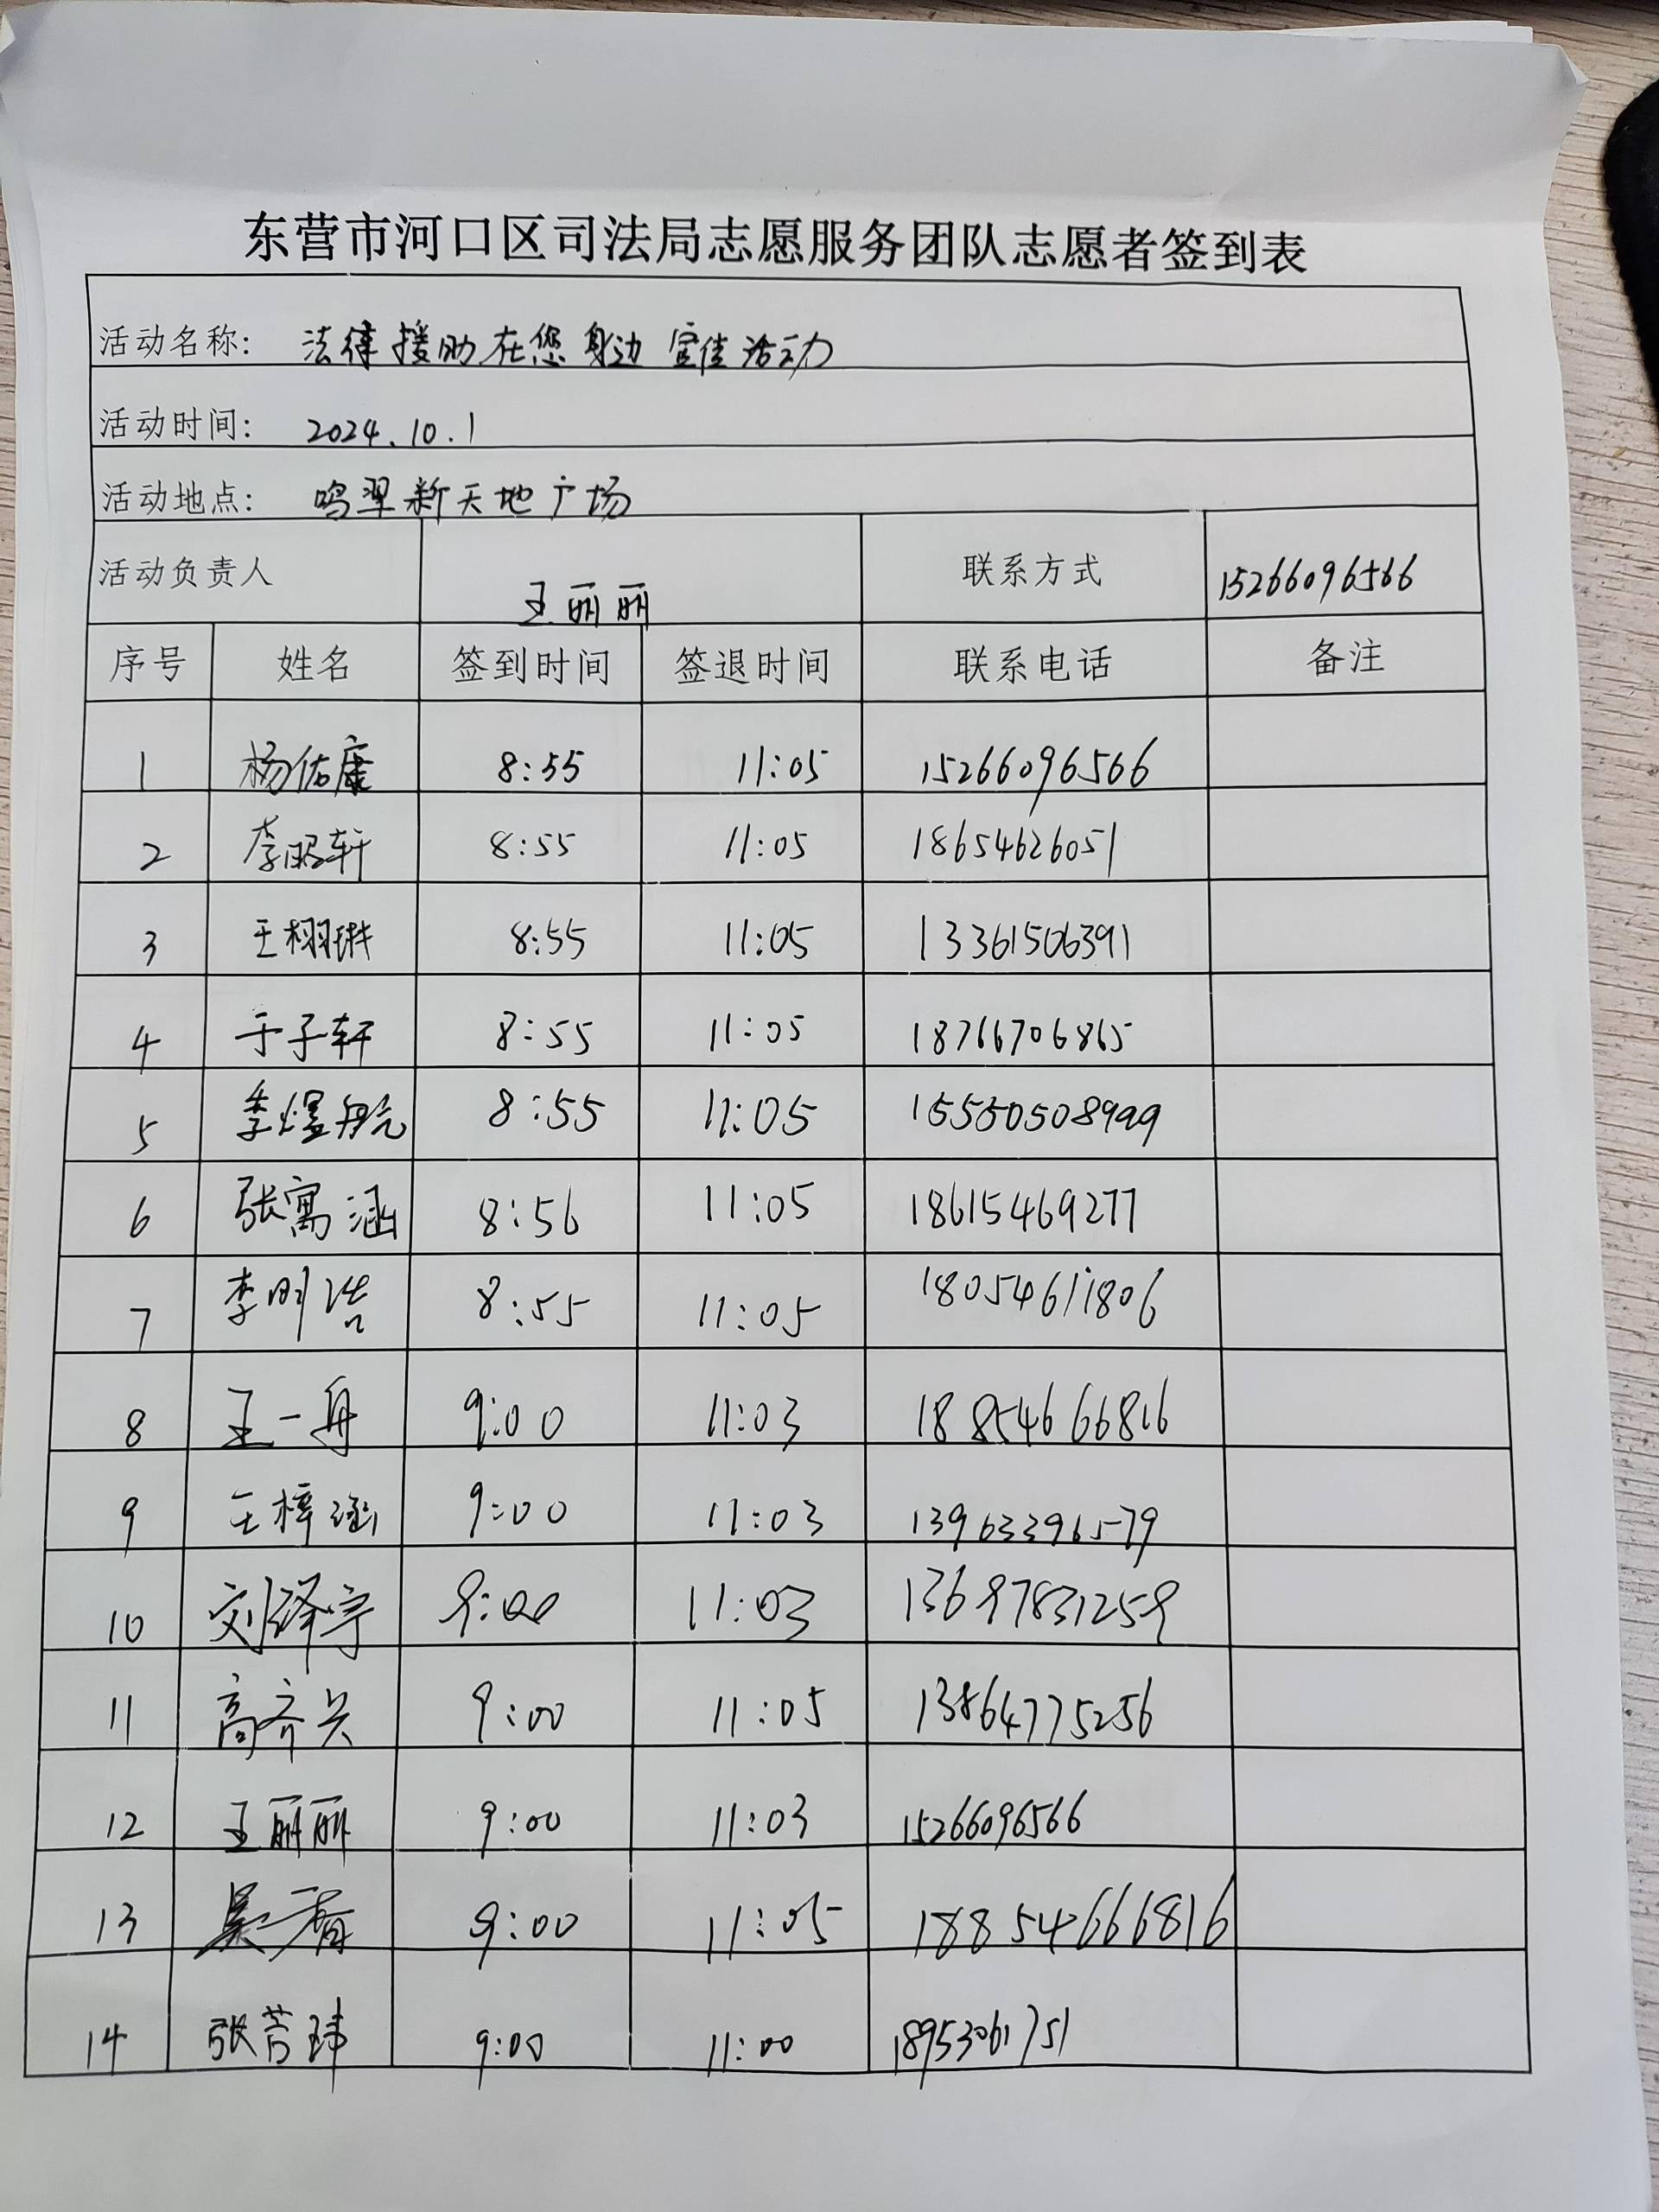 东营市河口区司法局志愿服务团队志愿者签到表
活动名称: 法律援助在您身边宣传活动
活动时间: 2024.10.1
活动地点: 鸣翠新天地广场
活动负责人 王丽丽 联系方式 15266096566
序号 姓名 签到时间 签退时间 联系电话 备注
1 杨佑康 8:55 11:05 15266096566
2 李昭轩 8:55 11:05 18654626051
3 王栩琳 8:55 11:05 13361506391
4 于子轩 8:55 11:05 18766706865
5 季煜航 8:55 11:05 15550508999
6 张寓涵 8:56 11:05 18615469277
7 李明浩 8:55 11:05 18054611806
8 王一舟 9:00 11:03 18854666816
9 王梓涵 9:00 11:03 13963396579
10 刘泽宇 9:00 11:03 13697831259
11 高齐兴 9:00 11:05 13864775256
12 王丽丽 9:00 11:03 15266096566
13 吴一 9:00 11:05 18854666816
14 张 玮 9:00 11:00 18953061751